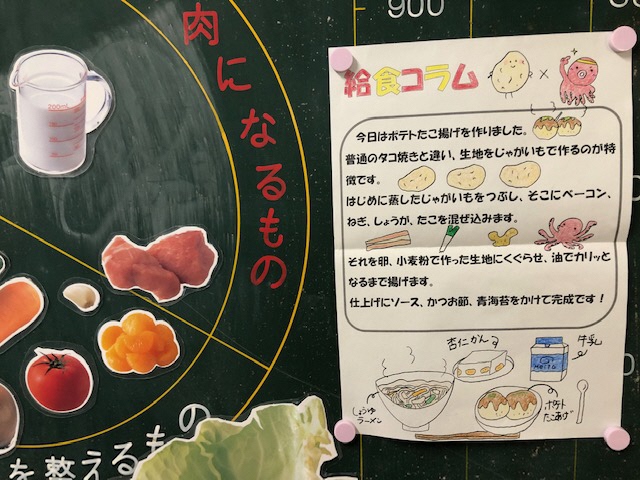 900
肉になるもの
を整えるもの
200mL
給食コラム
×
今日はポテトたこ揚げを作りました。
普通のタコ焼きと違い、生地をじゃがいもで作るのが特
徴です。
はじめに蒸したじゃがいもをつぶし、そこにベーコン、
ねぎ、しょうが、たこを混ぜ込みます。
それを卵、小麦粉で作った生地にくぐらせ、油でカリッと
なるまで揚げます。
仕上げにソース、かつお節、青海苔をかけて完成です！
杏仁かん
牛乳
Meito
しょうゆ
ラーメン
ポテト
たこあげ